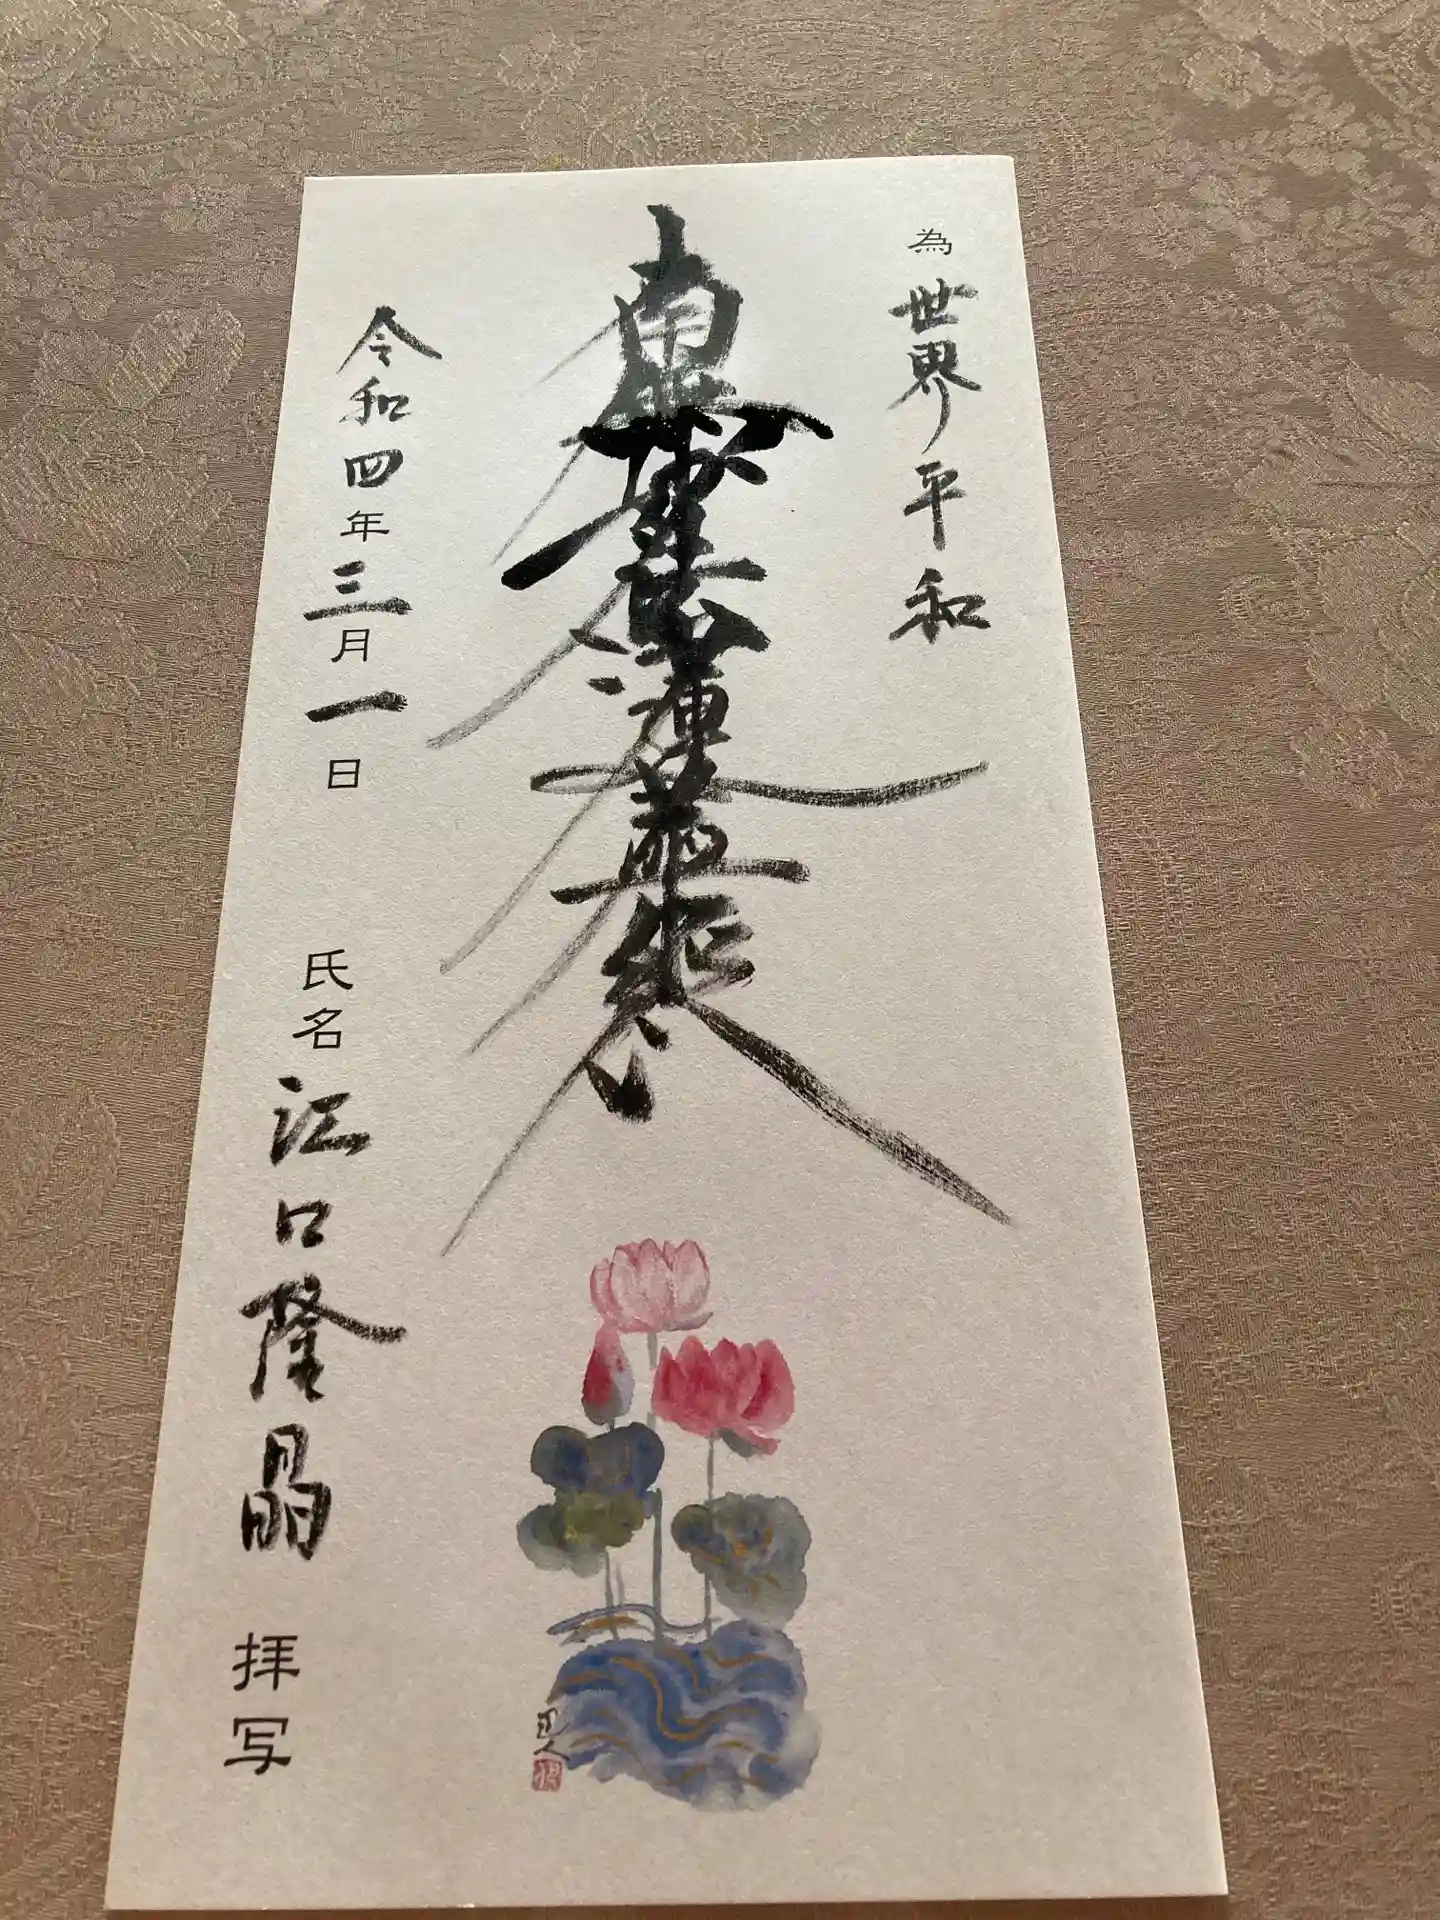 為世界平和
南無妙法蓮華經
令和四年三月一日 氏名 江口隆晶 拝写